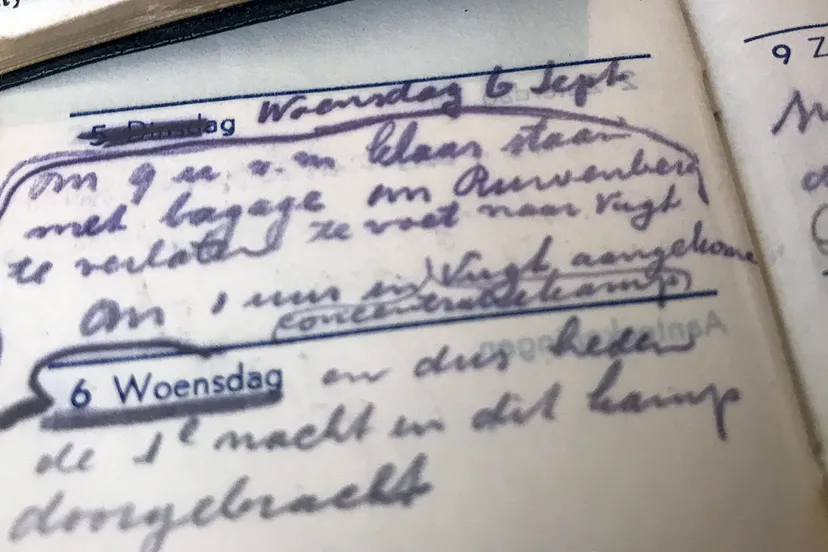 5 Dinsdag Woensdag 6 Sept
om 9 u v.m klaar staan
met bagage om Ruwenberg
te verlaten te voet naar Vugt
om 1 uur in Vugt aangekome
(concentratiekamp)
6 Woensdag en dus heden
de 1e nacht in dit kamp
doorgebracht
9 Z